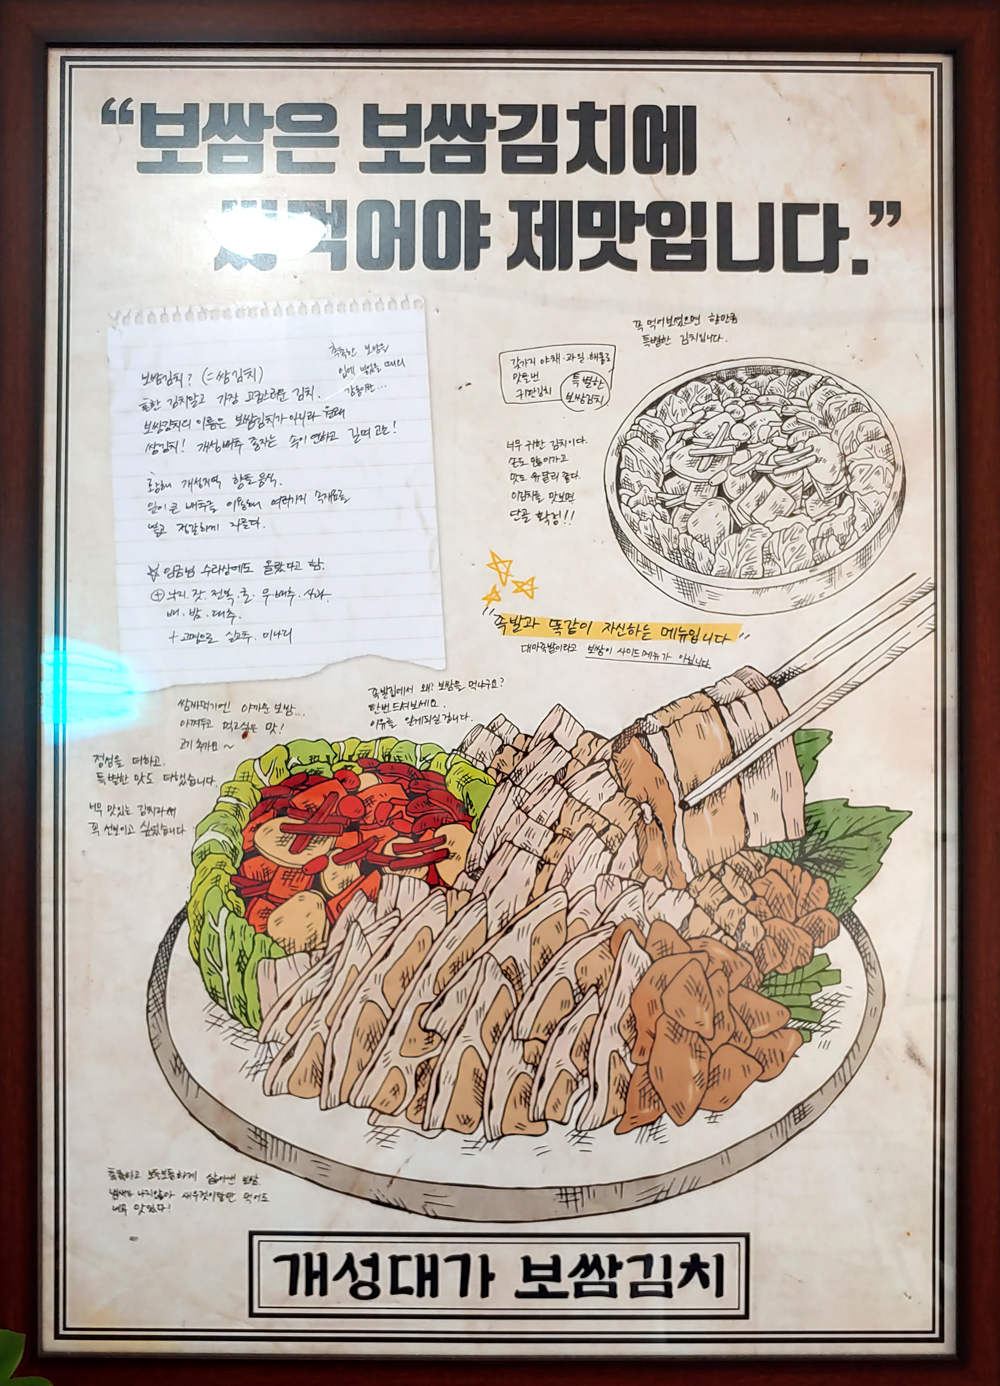 “보쌈은 보쌈김치에
먹어야 제맛입니다.”
촉촉한 보쌈을
입에 넣을 때의
감동이란...
보쌈김치? (=쌈김치)
흔한 김치말고 가장 고급스러운 김치.
보쌈김치의 이름은 보쌈김치가 아니라 원래
쌈김치! 개성배추 종자는 속이 연하고 길며 고소!
황해 개성지역 향토음식.
잎이 큰 배추를 이용해 여러가지 속재료를
넣고 정갈하게 자른다.
☆ 임금님 수라상에도 올랐다고 함.
⊕ 낙지·잣·전복·굴·무·배추·사과·
배·밤·대추.
+ 고명으로 실고추, 미나리
꼭 먹어보셨으면 할만큼
특별한 김치입니다.
갖가지 야채·과일·해물로
맛을 낸
귀한김치
특별한
보쌈김치
너무 귀한 김치이다.
손도 많이가고
맛도 유달리 좋다.
이김치를 맛보면
단골 확정!!
"족발과 똑같이 자신하는 메뉴입니다"
대마족발이라고 보쌈이 사이드메뉴가 아닙니다
족발집에서 왜? 보쌈을 먹나구요?
한번 드셔보세요.
이유를 알게되실겁니다.
쌈싸먹기엔 아까운 보쌈...
아껴두고 먹고싶은 맛!
고기 추가요~
정성을 더하고,
특별한 맛도 더했습니다.
너무 맛있는 김치라서
꼭 선보이고 싶었습니다
촉촉하고 보들보들하게 삶아낸 보쌈
냄새가 나지않아 새우젓이랑만 먹어도
너무 맛있다!
개성대가 보쌈김치